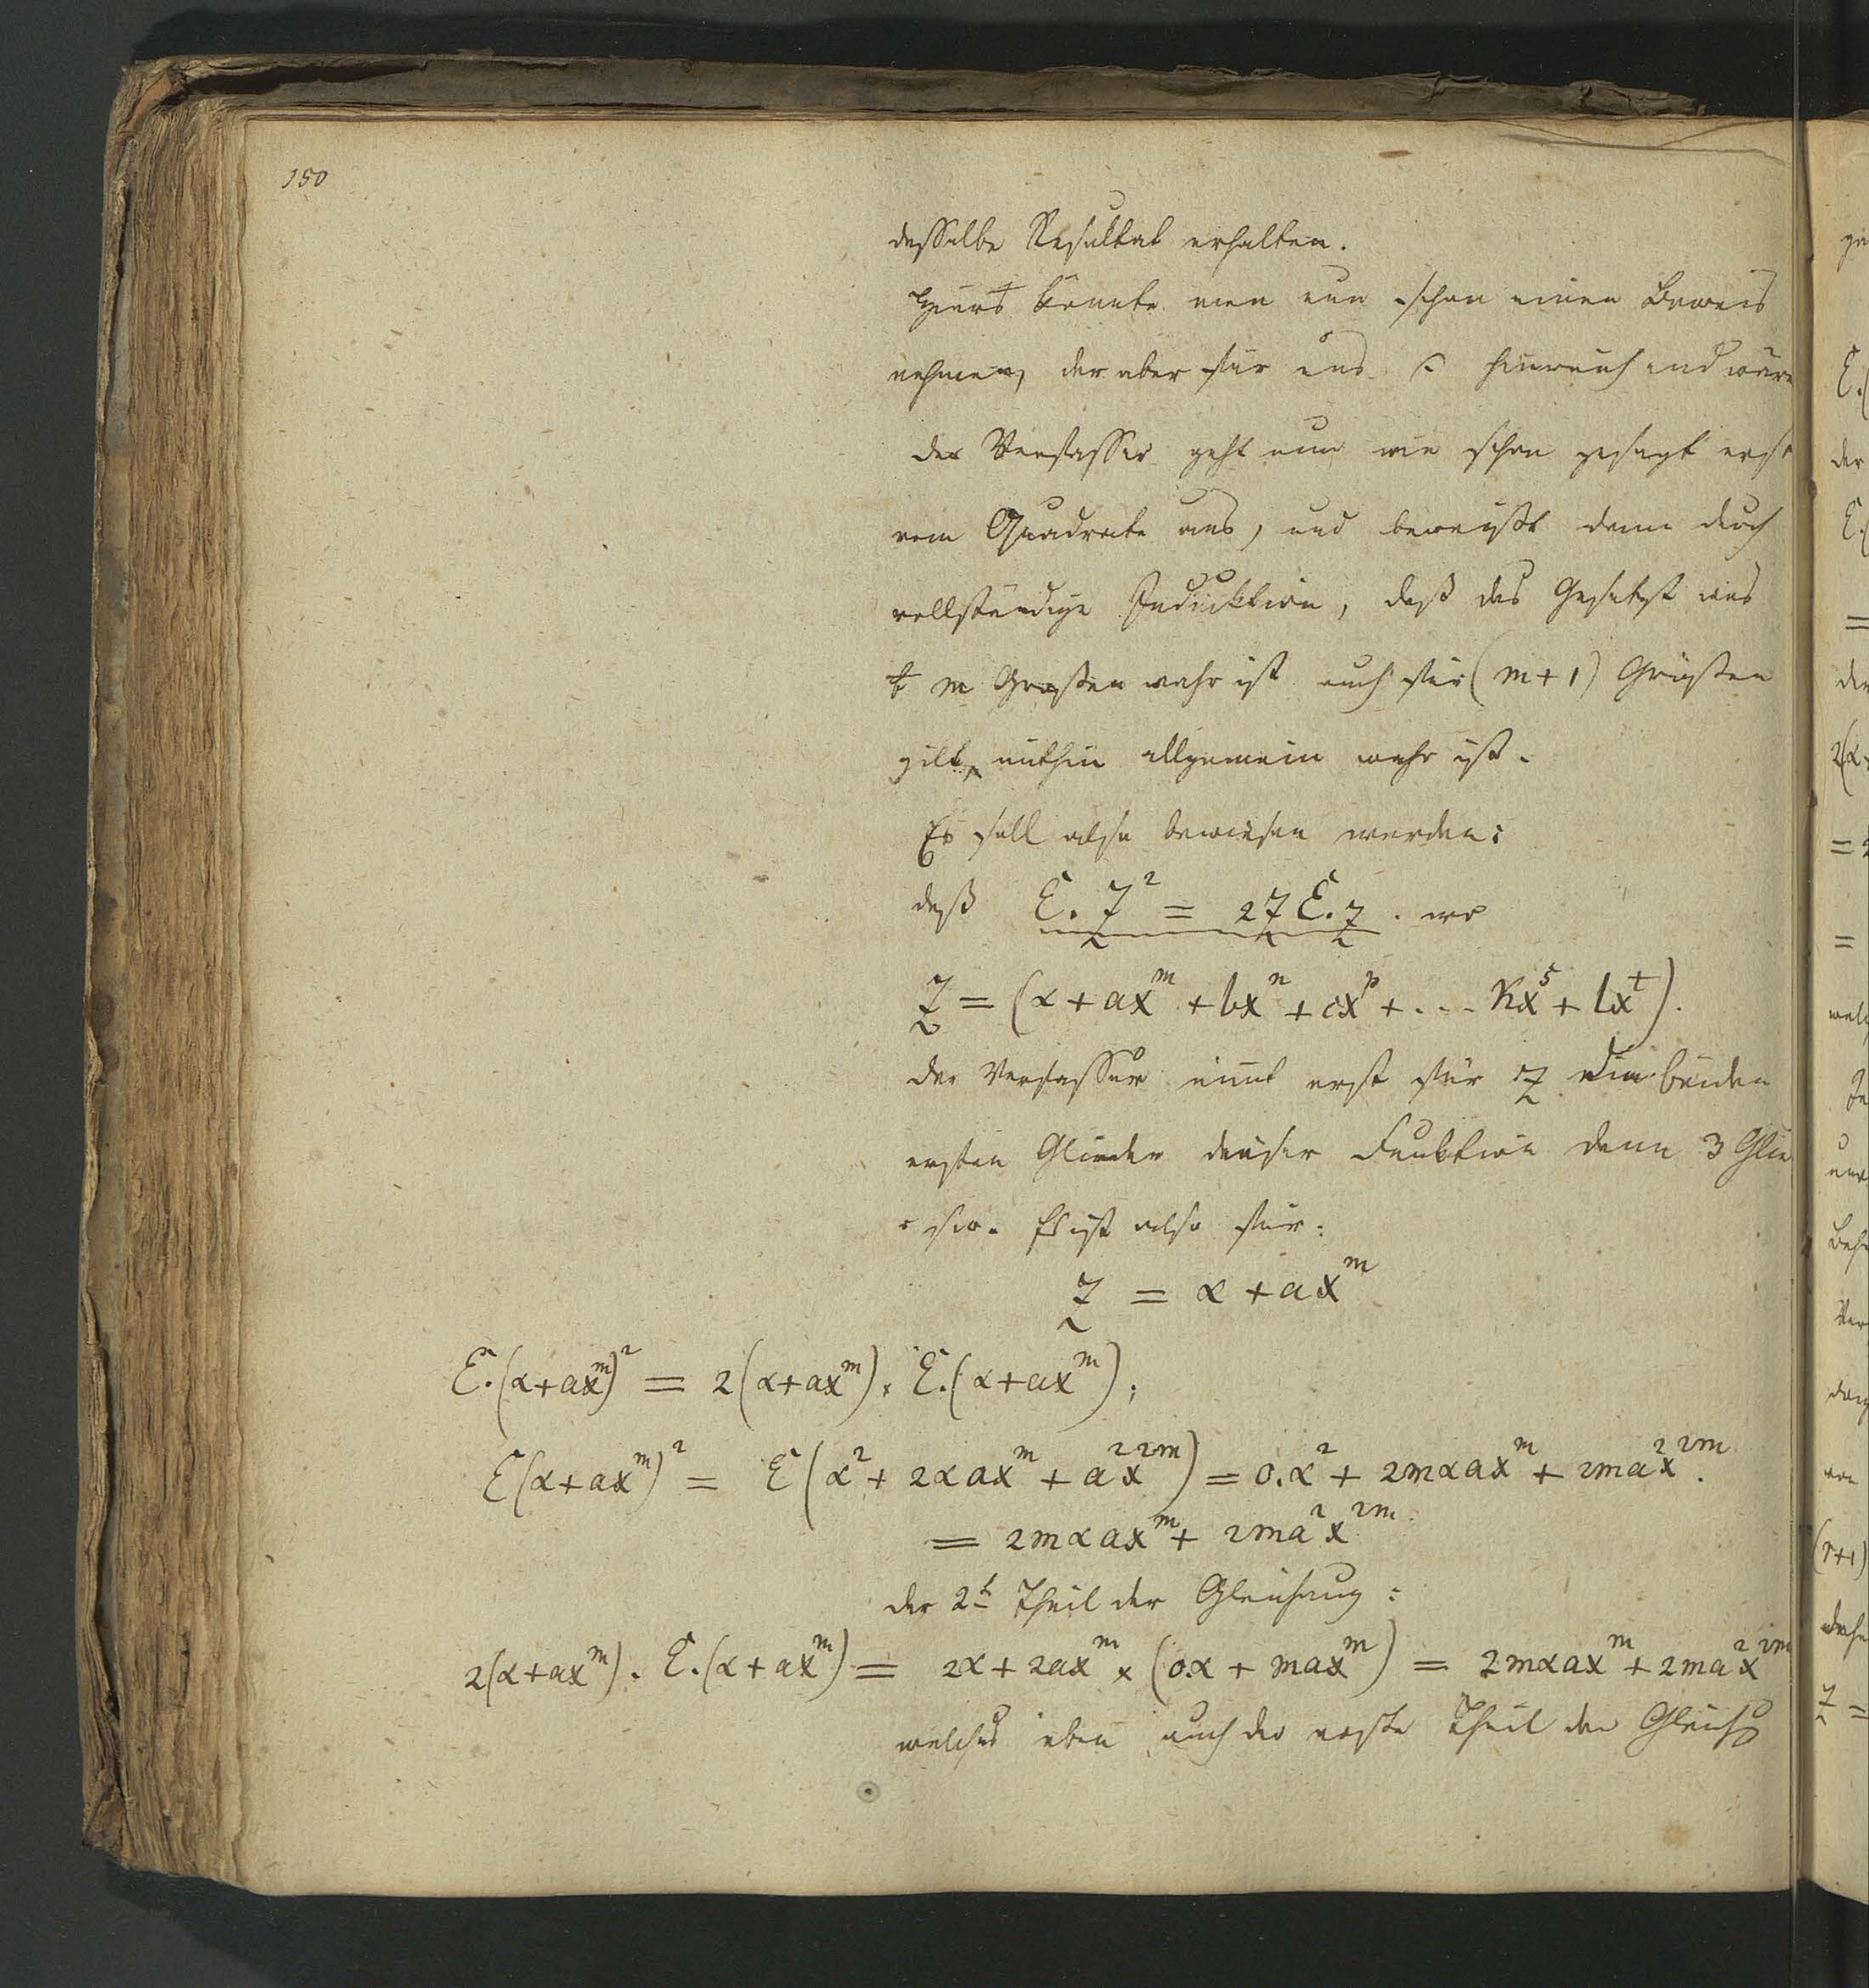 150
desselbe Resultat erhalten.
Hieraus könnte man nun schon einen Beweis
nehmen, der aber für uns hinreichend wäre
der Verfasser geht nun wie schon gesagt erst
vom Quadrate aus, und beweißt dann durch
vollständige Induktion, daß das Gesetz was
m Großen wahr ist auch für (m+1) Größen
gilt, mithin allgemein wahr ist.
Es soll also bewiesen werden:
daß Ɛ. Z² = 2Z Ɛ. Z . wo
Z = (α + ax^m + bx^n + cx^p + .... kx^s + lx^t).
der Verfasser nimt erst für Z die beiden
ersten Glieder dieser Funktion dann 3 Glie
Es ist also für:
Z = α + ax^m
Ɛ.(α+ax^m)² = 2(α+ax^m) × Ɛ.(α+ax^m);
Ɛ(α+ax^m)² = Ɛ(α² + 2αax^m + a²x^2m) = 0.α² + 2mαax^m + 2ma²x^2m.
= 2mαax^m + 2ma²x^2m.
der 2t Theil der Gleichung:
2(α+ax^m). Ɛ.(α+ax^m) = 2α + 2ax^m × (0α + max^m) = 2mαax^m + 2ma²x^2m
welches eben auch der erste Theil der Gleich